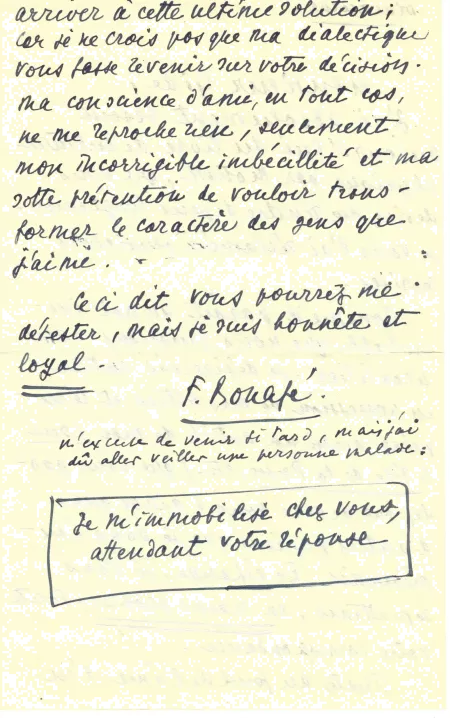 arriver à cette ultime solution ;
car je ne crois pas que ma dialectique
vous fasse revenir sur votre décision.
ma conscience d'ami, en tout cas,
ne me reproche rien, seulement
mon incorrigible imbécillité et ma
sotte prétention de vouloir trans-
former le caractère des gens que
j'aime.
Ceci dit vous pourrez me
détester, mais je suis honnête et
loyal.
F. Bonafé.
m'excuse de venir si tard, mais j'ai
dû aller veiller une personne malade :
Je m'immobilise chez vous,
attendant votre réponse